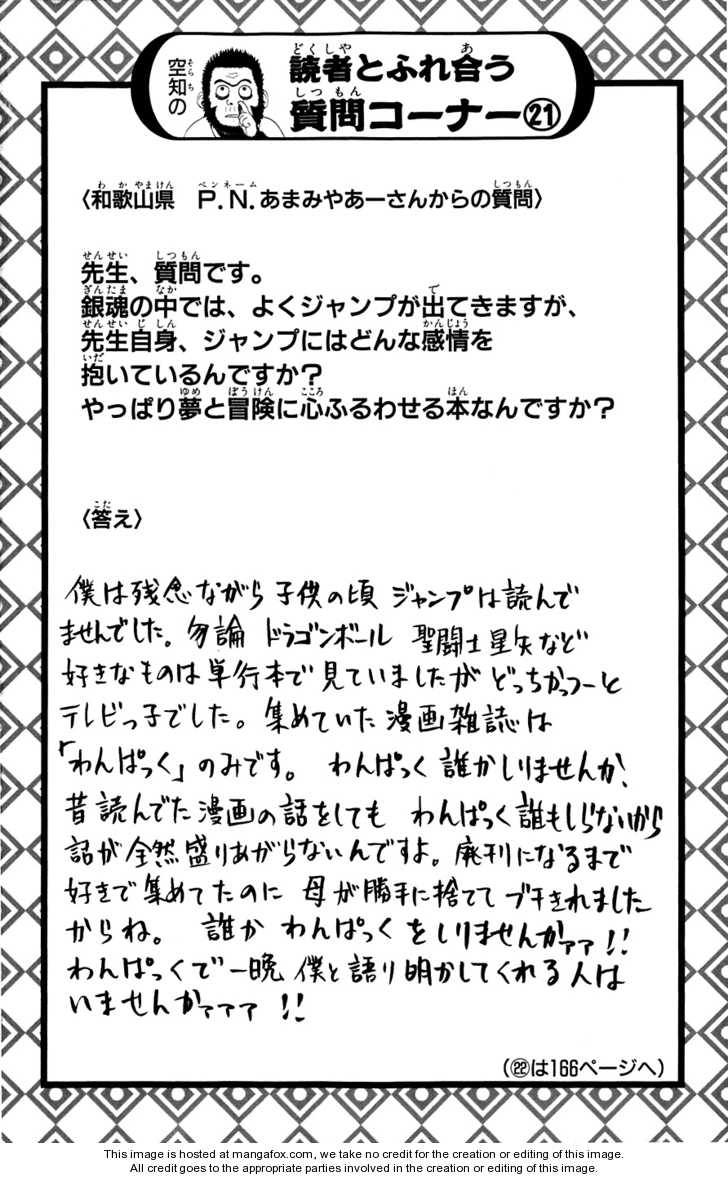 空知の
読者とふれ合う
質問コーナー㉑
〈和歌山県 P.N.あまみやあーさんからの質問〉
先生、質問です。
銀魂の中では、よくジャンプが出てきますが、
先生自身、ジャンプにはどんな感情を
抱いているんですか?
やっぱり夢と冒険に心ふるわせる本なんですか?
〈答え〉
僕は残念ながら子供の頃 ジャンプは読んで
ませんでした。勿論 ドラゴンボール 聖闘士星矢など
好きなものは単行本で見ていましたが どっちかっつーと
テレビっ子でした。集めていた漫画雑誌は
「わんぱっく」のみです。 わんぱっく誰かしりませんか、
昔読んでた漫画の話をしても わんぱっく誰もしらないから
話が全然盛りあがらないんですよ。廃刊になるまで
好きで集めてたのに 母が勝手に捨ててブチきれました
からね。 誰か わんぱっくをしりませんかァァ!!
わんぱっくで一晩 僕と語り明かしてくれる人は
いませんかァァァ!!
(㉒は166ページへ)
This image is hosted at mangafox.com, we take no credit for the creation or editing of this image.
All credit goes to the appropriate parties involved in the creation or editing of this image.